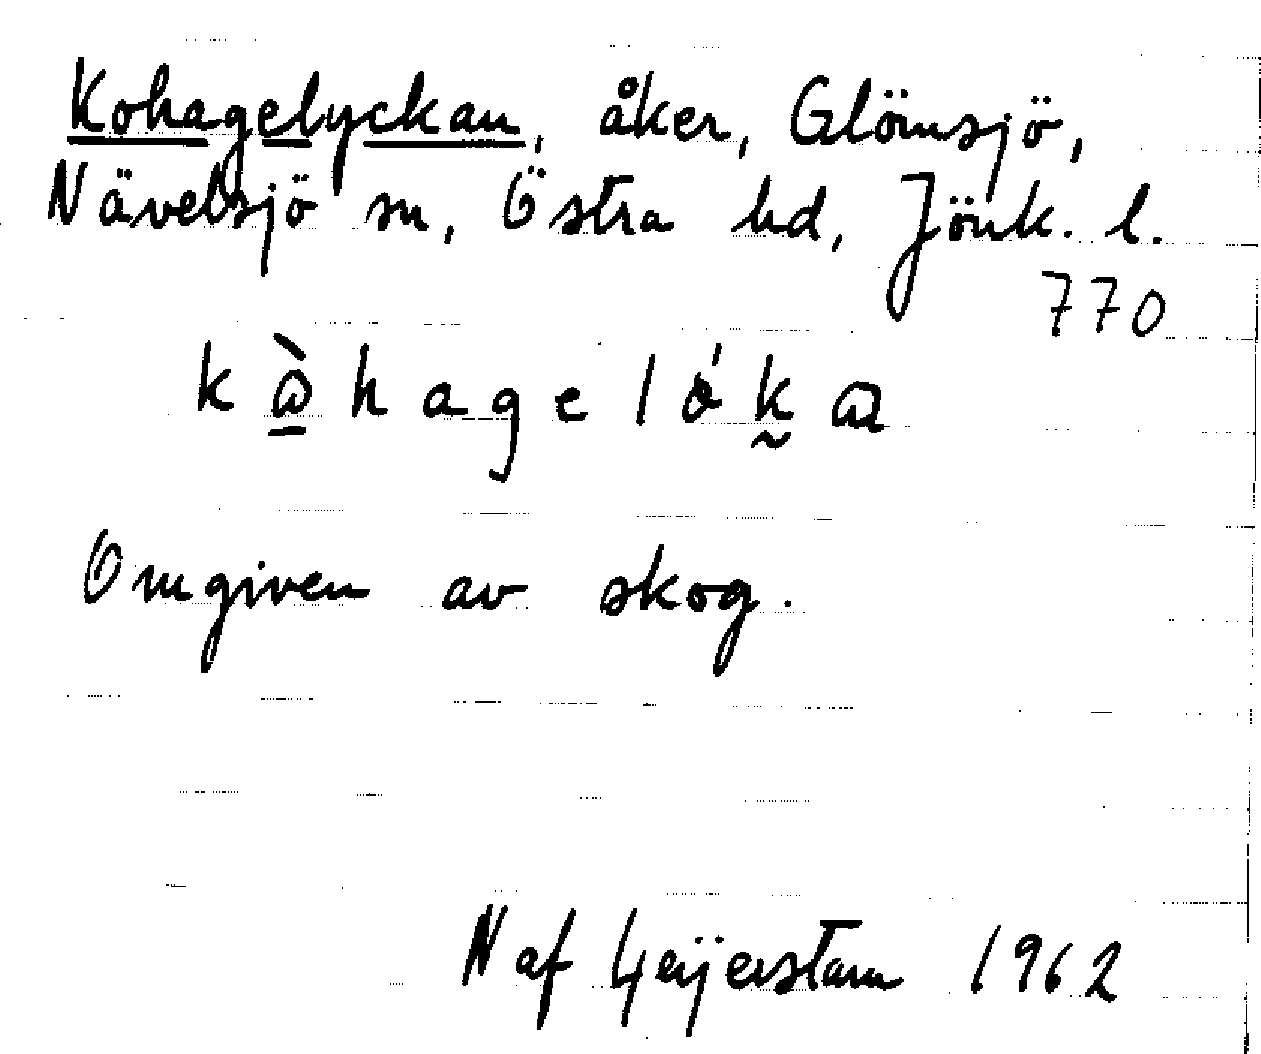 Kohagelyckan, åker, Glömsjö,
Nävelsjö sn, Östra hd, Jönk. l.
770
k ὼ h a g e l ǿ k̰ ɷ
Omgiven av skog.
N af Geijerstam 1962